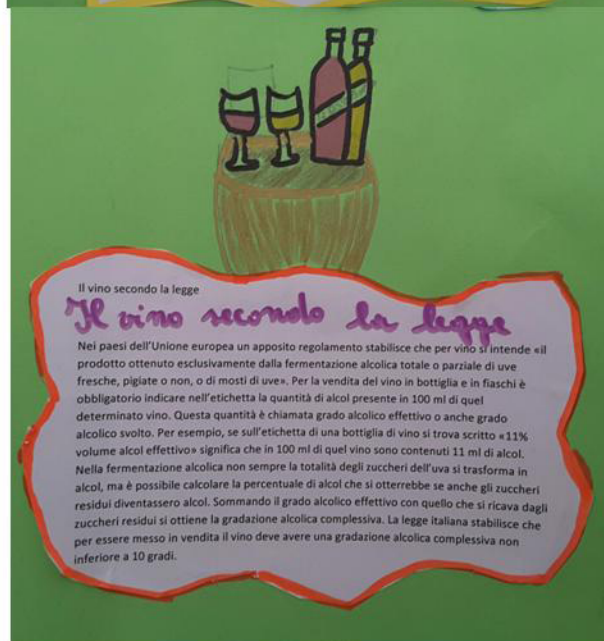 Il vino secondo la legge
Il vino secondo la legge
Nei paesi dell'Unione europea un apposito regolamento stabilisce che per vino si intende «il
prodotto ottenuto esclusivamente dalla fermentazione alcolica totale o parziale di uve
fresche, pigiate o non, o di mosti di uve». Per la vendita del vino in bottiglia e in fiaschi è
obbligatorio indicare nell'etichetta la quantità di alcol presente in 100 ml di quel
determinato vino. Questa quantità è chiamata grado alcolico effettivo o anche grado
alcolico svolto. Per esempio, se sull'etichetta di una bottiglia di vino si trova scritto «11%
volume alcol effettivo» significa che in 100 ml di quel vino sono contenuti 11 ml di alcol.
Nella fermentazione alcolica non sempre la totalità degli zuccheri dell'uva si trasforma in
alcol, ma è possibile calcolare la percentuale di alcol che si otterrebbe se anche gli zuccheri
residui diventassero alcol. Sommando il grado alcolico effettivo con quello che si ricava dagli
zuccheri residui si ottiene la gradazione alcolica complessiva. La legge italiana stabilisce che
per essere messo in vendita il vino deve avere una gradazione alcolica complessiva non
inferiore a 10 gradi.